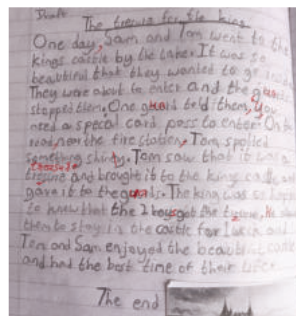 Draft
The tresure for the king
One day, Sam and Tom went to the
kings castle by the lake. It was so
beautiful that they wanted to go inside
They were about to enter and the guards
stopped them. One guard told them, You
need a specal card pass to enter. On the
road, near the fire station, Tom spotted
something shinty. Tom saw that it was a
treasure
tresure and brought it to the king castle and
gave it to the guards. The king was so happy
to knew that the 2 bought the tresure, He
them to stay in the castle for lunch and
Tom and Sam enjoyed the beautiful
and had the best time of their
The end